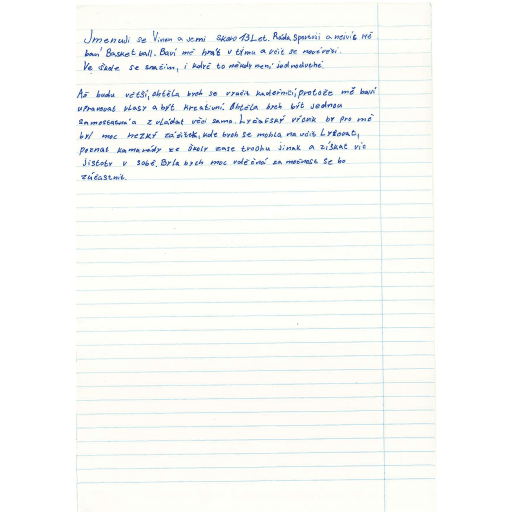 Jmenuji se Vivien a jsem skoro 13 Let. Ráda sportuji a nejvíc mě
baví Basket ball. Baví mě hrát v týmu a učit se nové věci.
Ve škole se snažím, i když to někdy není jednoduché.
Až budu větší, chtěla bych se vyučit kadeřnicí, protože mě baví
upravovat vlasy a být kreativní. Chtěla bych být jednou
samostatná a zvládat věci sama. Lyžařský výcvik by pro mě
byl moc hezký zážitek, kde bych se mohla naučit Lyžovat,
poznat kamarády ze školy zase trochu jinak a získat víc
jistoty v sobě. Byla bych moc vděčná za možnost se ho
zúčastnit.